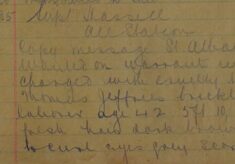 Supt Russell
All Station
Copy message St Alba
Wanted on warrant
charged with cruelty
Thomas Jeffries brickl
labourer age 42 5ft 10
fresh hair dark brow
eyes grey scar